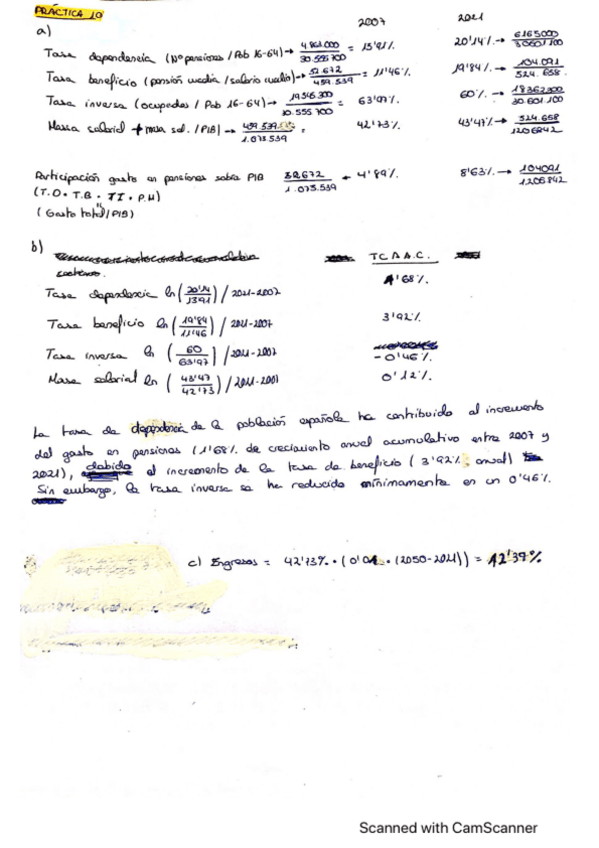 PRÁCTICA 10
a) 2007 2021
Tasa dependencia (Nº pensiones / Pob 16-64) → 4.861.000 / 30.555.700 = 15'91% 20'14% → 6165000 / 30601100
Tasa beneficio (pensión media / salario medio) → 52.672 / 459.539 = 11'46% 19'84% → 104.091 / 524.658
Tasa inversa (ocupados / Pob 16-64) → / 30.555.700 = 63'97% 60% → / 30.601.100
Masa salarial / PIB) → 459.539 / 1.075.539 = 42'73% 43'47% → 524.658 / 1206842
Participación gasto en pensiones sobre PIB / 1.075.539 = 4'89% 8'63% → 104091 / 1206842
(T.D · T.B · T.I · P.H)
(Gasto total / PIB)
b) T.C.A.A.C.
Tasa dependencia ln (20'14 / ) / 2021-2007 1'68%
Tasa beneficio ln (19'84 / 11'46) / 2021-2007 3'92%
Tasa inversa ln (60 / 63'97) / 2021-2007 -0'46%
Masa salarial ln (43'47 / 42'73) / 2021-2007 0'12%
La tasa de dependencia de la población española ha contribuido al incremento
del gasto en pensiones (1'68% de crecimiento anual acumulativo entre 2007 y
2021), debido al incremento de la tasa de beneficio (3'92% anual)
Sin embargo, la tasa inversa se ha reducido mínimamente en un 0'46%.
c) Ingresos = 42'73% · (0'01 · (2050-2021)) = 12'39%
Scanned with CamScanner